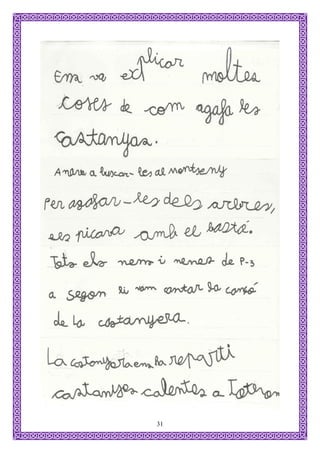 Ens va explicar moltes
coses de com agafa les
castanyas.
Anava a buscar-les al Montseny
Per agafar-les dels arbres,
les picava amb el bastó.
Tots els nens i nenes de P-3
a segon li vam cantar la cansó
de la castanyera.
La castanyera ens ba repartí
castanyes calentes a Tots
31